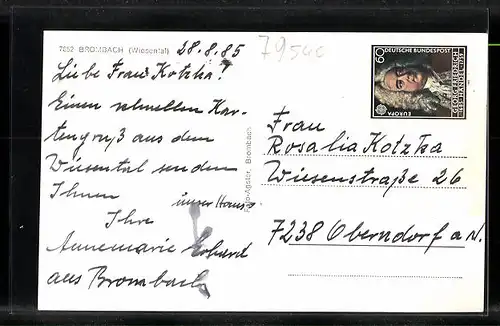 7852 BROMBACH (Wiesental)
28.8.85
79540
Liebe Frau Kotzka!
Einen schnellen Kar-
tengruß aus dem
Wiesental senden
Ihnen
Ihre
Annemarie Erhard
aus Brombach
Foto-Anster, Brombach
DEUTSCHE BUNDESPOST
60
GEORG FRIEDRICH
HÄNDEL
EUROPA
Frau
Rosalia Kotzka
Wiesenstraße 26
7238 Oberndorf a. N.